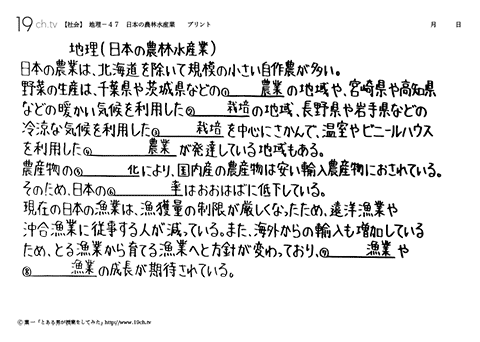 19ch.tv 【社会】 地理－47 日本の農林水産業 プリント 月 日
地理(日本の農林水産業)
日本の農業は、北海道を除いて規模の小さい自作農が多い。
野菜の生産は、千葉県や茨城県などの① 農業の地域や、宮崎県や高知県
などの暖かい気候を利用した② 栽培の地域、長野県や岩手県などの
冷涼な気候を利用した③ 栽培を中心にさかんで、温室やビニールハウス
を利用した④ 農業が発達している地域もある。
農産物の⑤ 化により、国内産の農産物は安い輸入農産物におされている。
そのため、日本の⑥ 率はおおはばに低下している。
現在の日本の漁業は、漁獲量の制限が厳しくなったため、遠洋漁業や
沖合漁業に従事する人が減っている。また、海外からの輸入も増加している
ため、とる漁業から育てる漁業へと方針が変わっており、⑦ 漁業や
⑧ 漁業の成長が期待されている。
© 葉一「とある男が授業をしてみた」http://www.19ch.tv